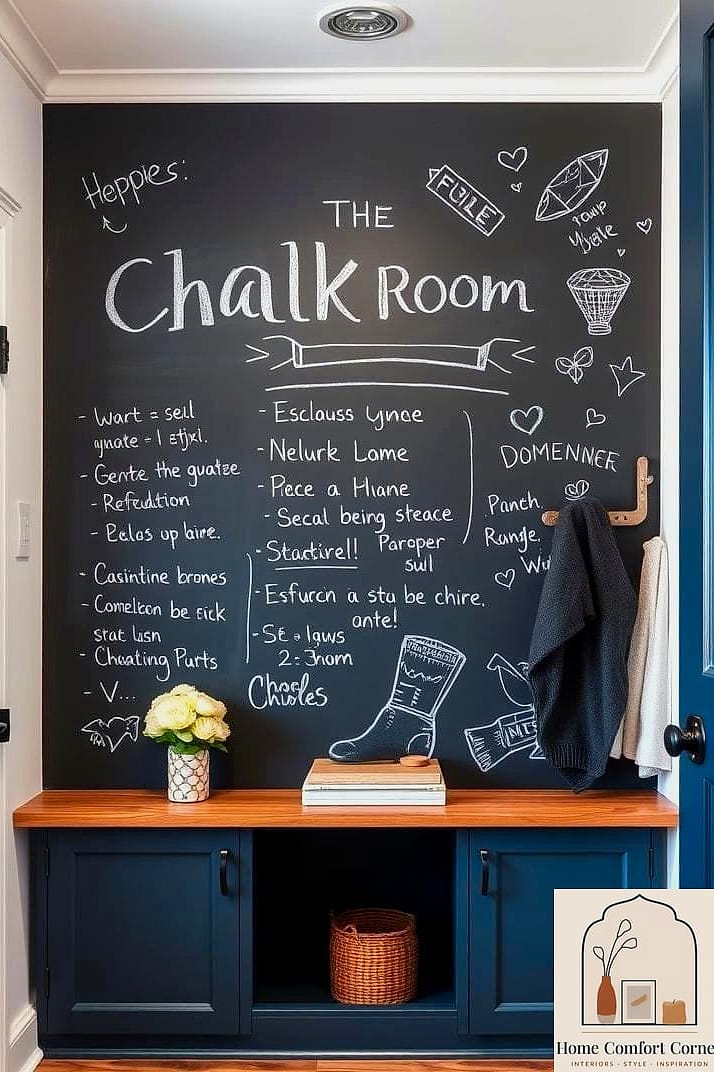 Heppies:
THE
Chalk Room
FOLE
- Wart = sell
- Gente the guatze
- Refeudation
- Belas up bire.
- Casintine brones
- Comelton be sick
stat lusn
- Chaating Purts
- V...
- Esclauss ynoe
- Nelurk Lome
- Piece a Hiane
- Secal being steace
- Stactirel! Paroper
sull
- Esfurch a sta be chire.
ante!
- St = laws
2 = Jnom
DOMENNER
Panth
Rangle.
Home Comfort Corne
INTERIORS · STYLE · INSPIRATION